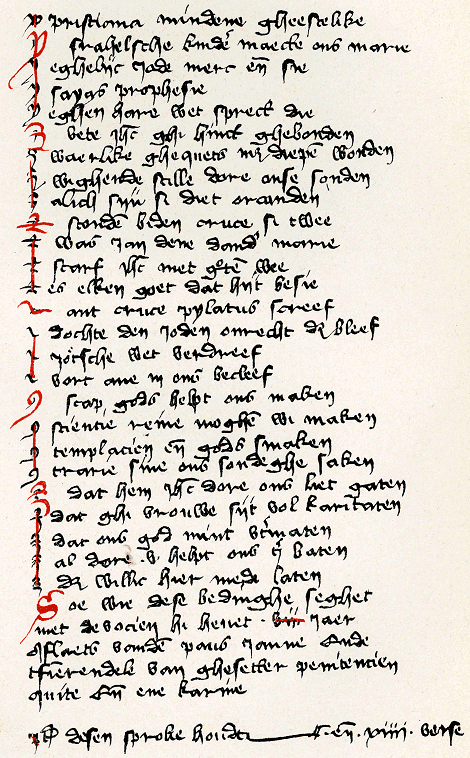 pristioma mindene gheestelike
srahelsche kinder maecte ons marie
eghelijc jode merc en sie
sayas prophesie
eghen hare wet sprect die
vete jhc ghi hinct ghebonden
waerlike ghequets mz diepen wonden
wighende stille dore onse sonden
alich sijn si diet orconden
stonden biden cruce si twee
was jan dene dander marie
starf jhc met groten wee
es elken goet dat hijt besie
ant cruce pylatus screef
dochte den joden onrecht bleef
wet verdreef
vort ane in ons becleef
scap gods helpt ons maken
scientie reine moghen wi maken
templacien en gods smaken
trarie sine ons sondeghe saken
dat hem jhc dore ons liet gaten
dat ghi vrouwe sijt vol karitaten
dat ons god mint utermaten
al dore v helpt ons baten
willic hier mede laten
Soe wie dese bedinghe seghet
met devocien hi hevet viij jaer
oflaets vanden paus janne Ende
tfierendele van ghesetter penitencien
quite En ene karine

desen sproke houdt C. en. xiiii. verse